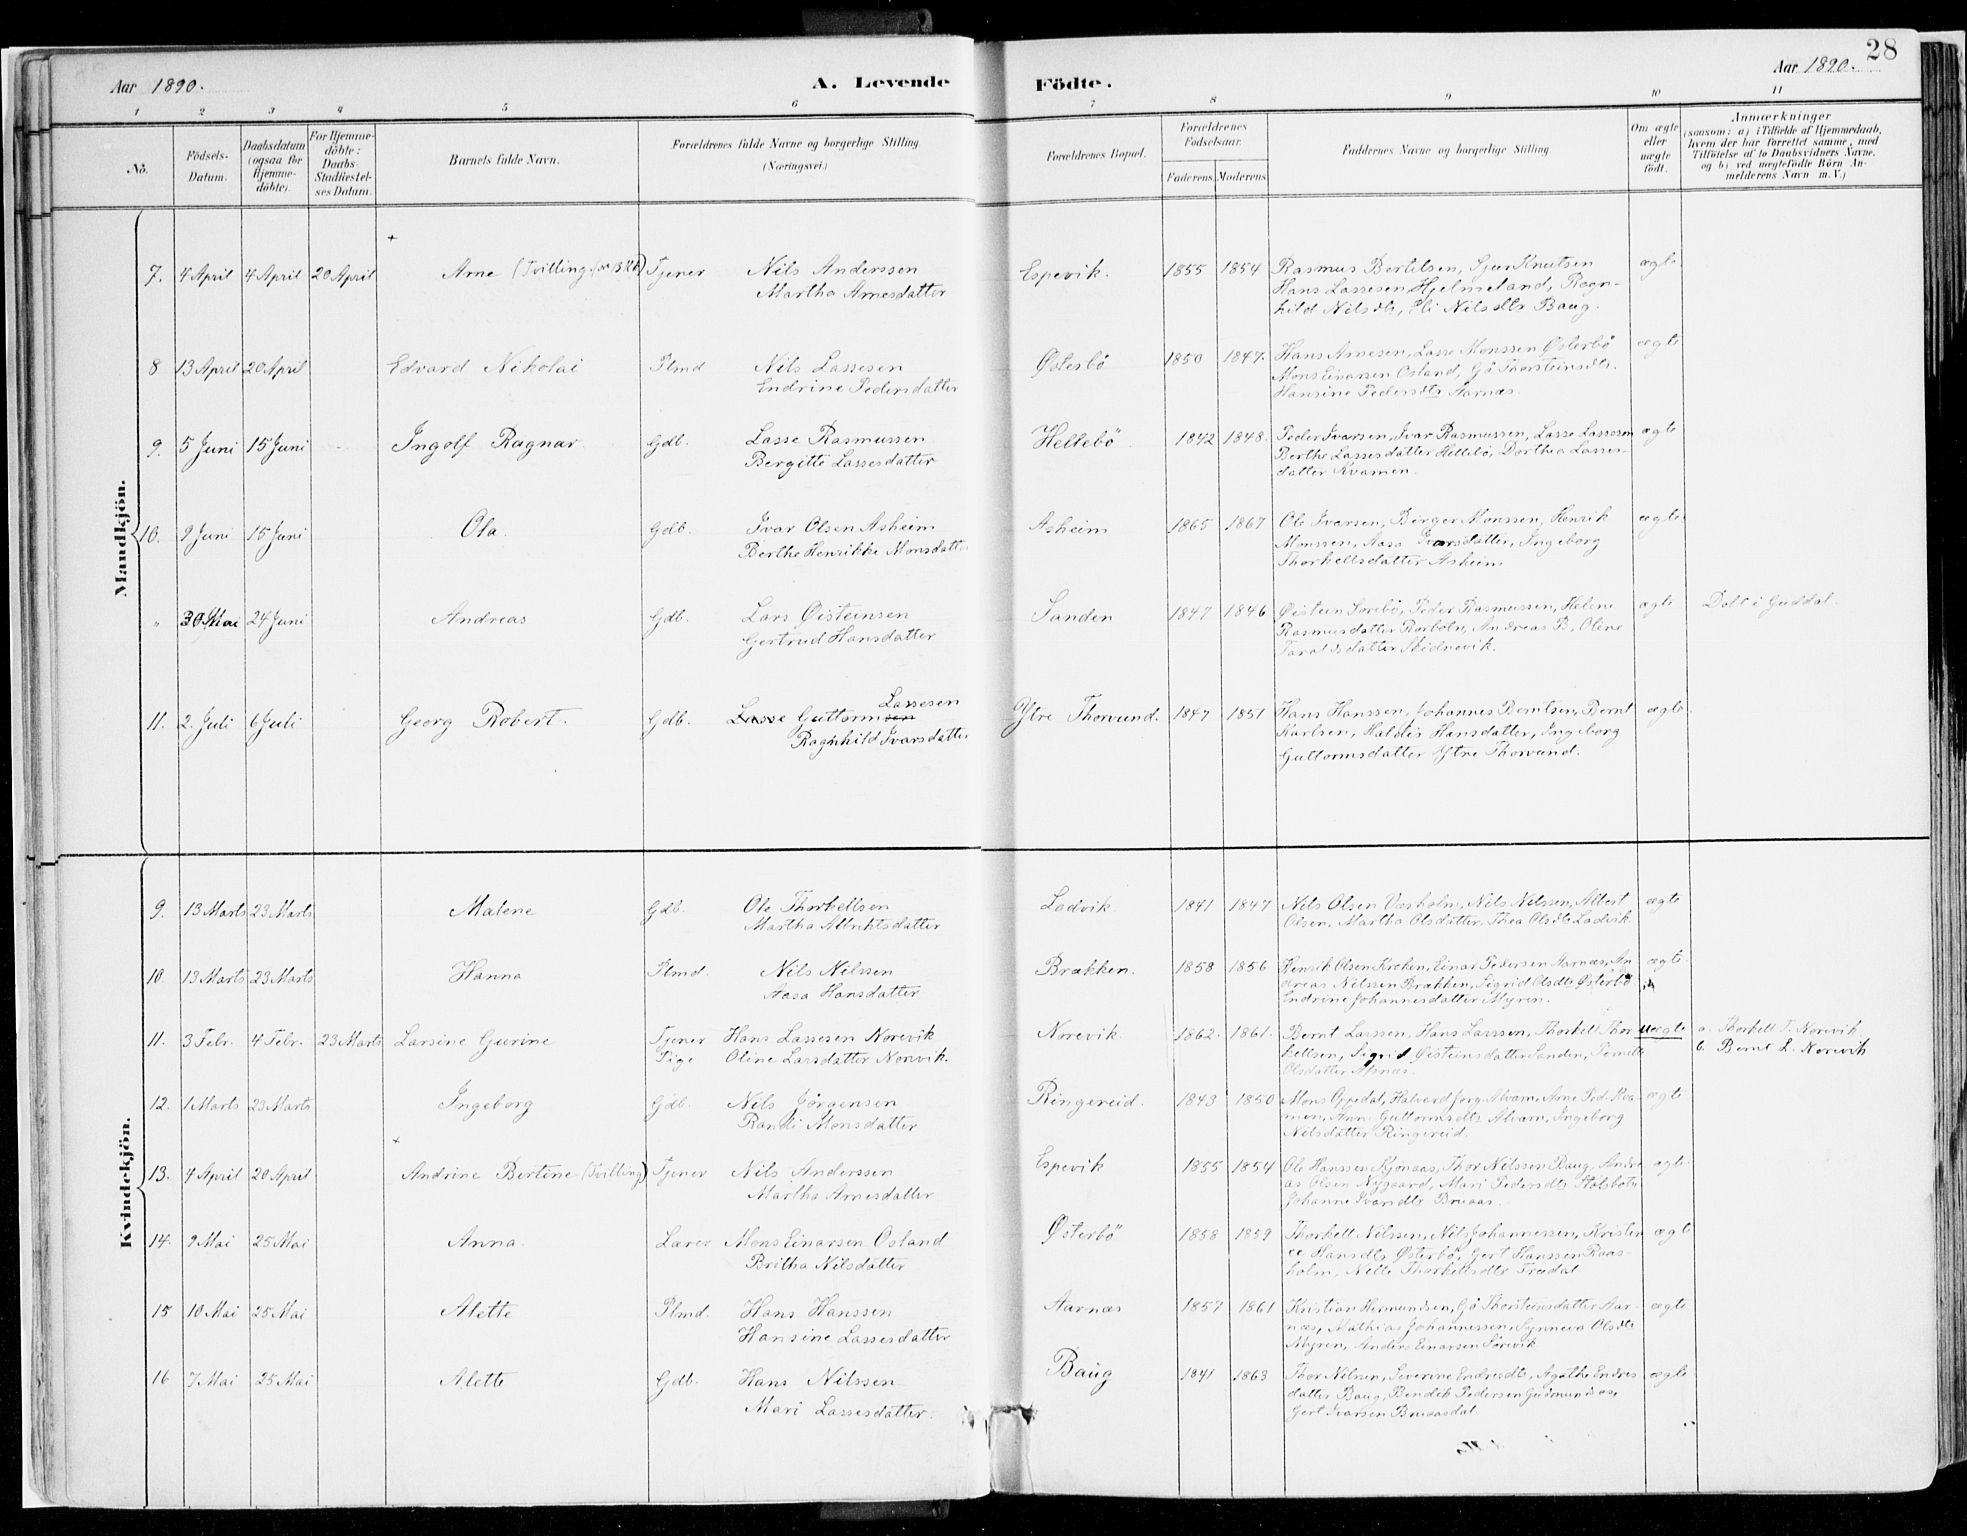 28
Aar 1890. A. Levende Födte. Aar 1890.
1 2 3 4 5 6 7 8 9 10 11
No. Födsels-Datum. Daabsdatum (ogsaa for Hjemme-döbte). For Hjemme-döbte: Daabs-Stadfæstel-ses Datum. Barnets fulde Navn. Forældrenes fulde Navne og borgerlige Stilling (Næringsvei.) Forældrenes Bopæl. Forældrenes Födselsaar. Faderens. Moderens. Faddernes Navne og borgerlige Stilling Om ægte eller uægte födt. Anmærkninger (saasom: a) i Tilfælde af Hjemmedaab, hvem der har forrettet samme, med Tilföielse af to Daabsvidners Navne, og b) ved uægtefödte Börn Anmelderens Navn m. V.)
Mandkjön.
7. 4 April 4 April 20 April Arne (Tvilling Tjener Nils Anderssen Espevik. 1855 1854 Rasmus Bertelsen, Sjur Knutsen ægte
Martha Arnesdatter Hans Lassesen Hjelmeland, Ragn-
hild Nilsdtr, Eli Nilsdtr Baug.
8 13 April 20 April Edvard Nikolai Plmd Nils Lassesen Østerbö 1850 1847. Hans Arnesen, Lasse Monssen Østerbö ægte
Endrine Pedersdatter Mons Einarsen Osland, Gö Thorsteinsdtr.
Hansine Pedersdtr Aarnæs.
9. 5 Juni 15 Juni Ingolf Ragnar. Gdb. Lasse Rasmussen Hellebö 1842 1848. Peder Ivarsen, Ivar Rasmussen, Lasse Lassesen ægte
Bergitte Lassesdatter Berthe Lassesdatter Hellebö, Dorthea Lasses-
datter Kvamen.
10. 9 Juni 15 Juni Ola. Gdb. Ivar Olsen Asheim Asheim 1865 1867 Ole Ivarsen, Birger Monssen, Henrik ægte.
Berthe Henrikke Monsdatter Monssen, Aasa Ivarsdatter, Ingeborg
Thorkellsdatter Asheim
" 30 Mai 24 Juni Andreas Gdb. Lars Øisteinsen Sanden 1847 1846 Øistein Sørebö, Peder Rasmussen, Helene ægte Döbt i Guddal.
Gertrud Hansdatter Rasmusdatter Rørbotn, Andreas B, Oline
datter Skidnevik.
11. 2. Juli 6 Juli Georg Robert. Gdb. Lasse Guttormsen Lassesen Ytre Thorvund. 1847 1851 Hans Hanssen, Johannes Berntsen, Bernt ægte.
Ragnhild Ivarsdatter Karlsen, Haldis Hansdatter, Ingeborg
Guttormsdatter Ytre Thorvund.
Kvindekjön.
9. 13 Marts 23 Marts Malene Gdb. Ole Thorkellsen Ladvik 1841 1847 Nils Olsen Vasholm, Nils Nilssen, Albert ægte
Martha Albrektsdatter Olsen, Martha Olsdatter, Thea Olsdtr Ladvik
10. 13 Marts 23 Marts Hanna Plmd. Nils Nilssen Brækken. 1858 1856 Henrik Olsen Kroken, Einar Pedersen Aarnæs, An- ægte.
Aasa Hansdatter dreas Nilssen Brækken, Sigrid Olsdtr Østerbö
Endrine Johannesdatter Myren.
11. 3 Febr. 4 Febr. 23 Marts Larsine Gurine Tjener Hans Lassesen Norevik Norevik. 1862. 1861. Bernt Larssen, Hans Larssen, Thorkell Thor- uægte a. Thorkell T. Norevik
Pige Oline Larsdatter Norevik. kellsen, Sigrid Øisteinsdatter Sanden, Pernille b. Bernt L. Norevik
Olsdatter
12. 1 Marts 23 Marts Ingeborg Gdb. Nils Jørgensen Ringereid. 1843 1850 Mons Oppedal, Halvard Jorg. Alvam, Arne Ped. Kva- ægte
Randi Monsdatter men, Anna Guttormsdtr Alvarn, Ingeborg
Nilsdatter Ringereid.
13. 4 April 20 April Andrine Bertine (Tvilling) Tjener Nils Anderssen Espevik 1855 1854 Ole Hanssen Kjönaas, Thor Nilssen Baug, Andre- ægte.
Martha Arnesdatter as Olsen Nygaard, Mari Pedersdtr
Johanne Ivarsdtr Bruaas.
14. 9 Mai 25 Mai Anna. Lærer Mons Einarsen Osland Østerbö 1858 1859 Thorkell Nilssen, Nils Johannessen, Kristen- ægte
Britha Nilsdatter ce Hansdtr Østerbö, Gert Hanssen Raas-
holm, Nille Thorkellsdtr Frædal
15 10 Mai 25 Mai Alette Plmd. Hans Hanssen Aarnæs 1857 1861 Kristian Hermundsen, Gö Thorsteinsdatter Aar- ægte
Hansine Lassesdatter næs, Mathias Johannessen, Synneva Olsdtr
Myren, Anders Einarsen Sørevik
16 7 Mai 25 Mai Alette Gdb. Hans Nilssen Baug 1841 1863 Thor Nilsen, Severine Endresdtr, Agathe Endres ægte
Mari Lassesdatter. datter Baug, Bendik Pedersen Gudmundsøe,
Gert Ivarsen Bruaasdal